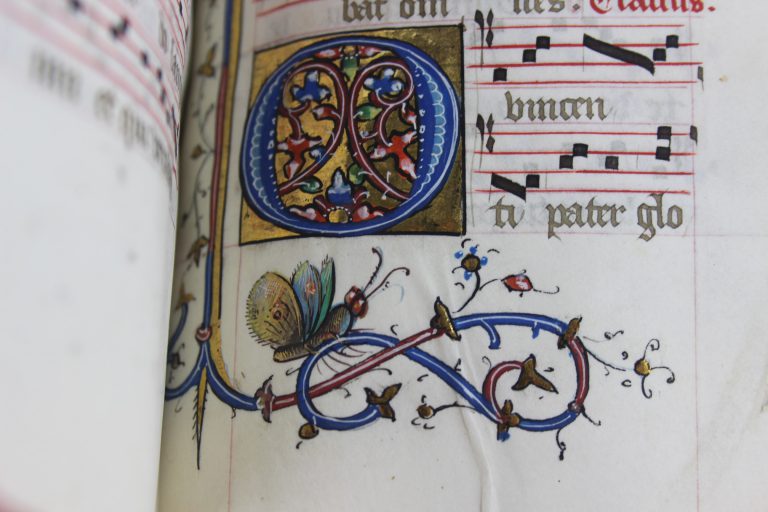 bat om nes. Tractus.
O vincen
ti pater glo